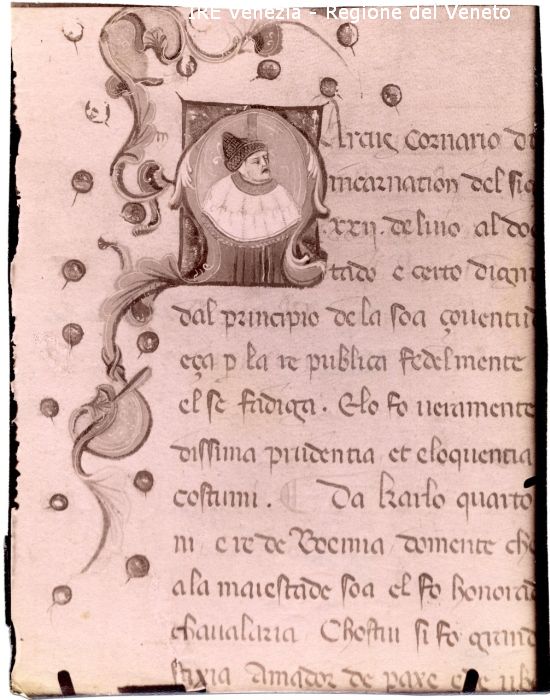 IRE Venezia - Regione del Veneto
Arcus Cornario di
incarnation del sig
.xxii. de luio al do
tado e certo digni
dal principio de la soa çoventud
eça p la re publica fedelmente
el se fadiga. Elo fo veramente
dissima prudentia et eloquentia
costumi. Da karlo quarto
ni e re de Boemia domente che
a la maiestade soa el fo honorad
chavalaria Chostui si fo grand
Amador de paxe e